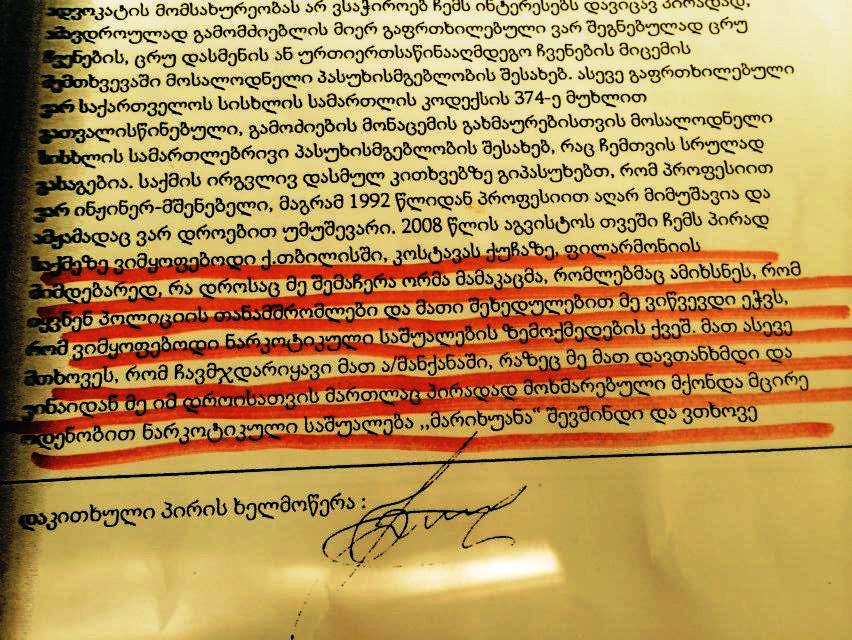 ადვოკატის მომსახურეობას არ ვსაჭიროებ ჩემს ინტერესებს დავიცავ პირადად,
ამავდროულად გამომძიებლის მიერ გაფრთხილებული ვარ შეგნებულად ცრუ
ჩვენების, ცრუ დასმენის ან ურთიერთსაწინააღმდეგო ჩვენების მიცემის
შემთხვევაში მოსალოდნელი პასუხისმგებლობის შესახებ. ასევე გაფრთხილებული
ვარ საქართველოს სისხლის სამართლის კოდექსის 374-ე მუხლით
გათვალისწინებული, გამოძიების მონაცემის გახმაურებისთვის მოსალოდნელი
სისხლის სამართლებრივი პასუხისმგებლობის შესახებ, რაც ჩემთვის სრულად
გასაგებია. საქმის ირგვლივ დასმულ კითხვებზე გიპასუხებთ, რომ პროფესიით
ვარ ინჟინერ-მშენებელი, მაგრამ 1992 წლიდან პროფესიით აღარ მიმუშავია და
ამჟამადაც ვარ დროებით უმუშევარი. 2008 წლის აგვისტოს თვეში ჩემს პირად
საქმეზე ვიმყოფებოდი ქ.თბილისში, კოსტავას ქუჩაზე, ფილარმონიის
მიმდებარედ, რა დროსაც მე შემაჩერა ორმა მამაკაცმა, რომლებმაც ამიხსნეს, რომ
იყვნენ პოლიციის თანამშრომლები და მათი შეხედულებით მე ვიწვევდი ეჭვს,
რომ ვიმყოფებოდი ნარკოტიკული საშუალების ზემოქმედების ქვეშ. მათ ასევე
მთხოვეს, რომ ჩავმჯდარიყავი მათ ა/მანქანაში, რაზეც მე მათ დავთანხმდი და
ვინაიდან მე იმ დროისათვის მართლაც პირადად მოხმარებული მქონდა მცირე
ოდენობით ნარკოტიკული საშუალება ,,მარიხუანა“ შევშინდი და ვთხოვე
დაკითხული პირის ხელმოწერა :